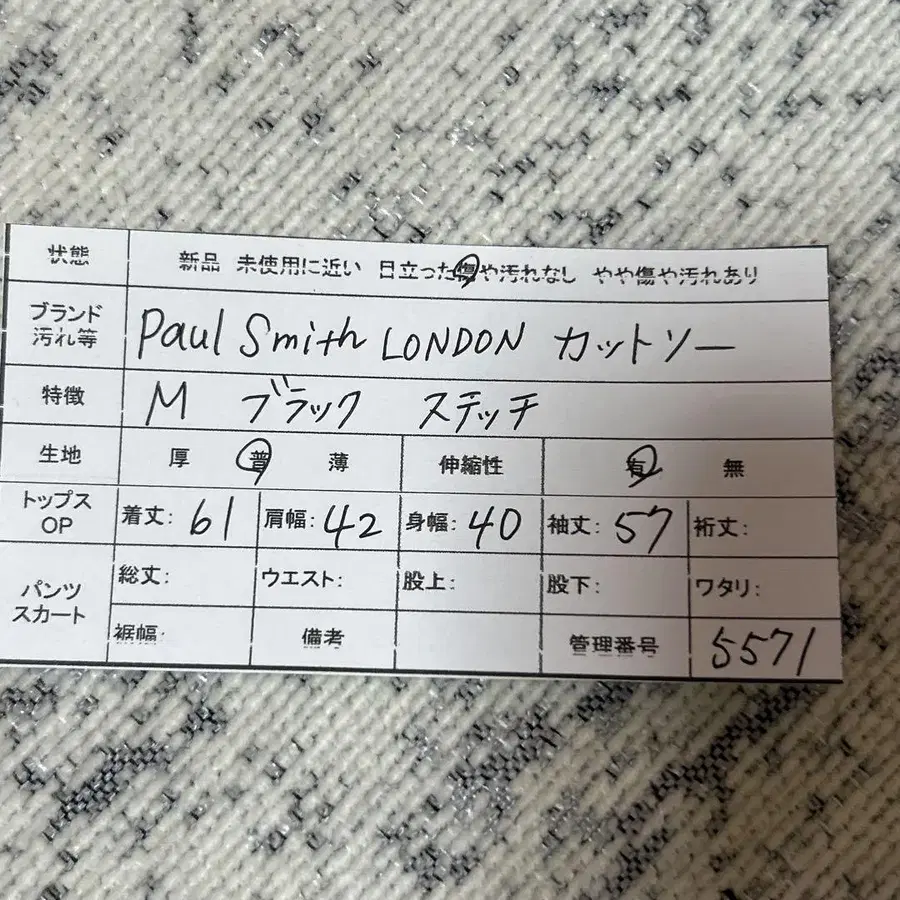 状態 新品 未使用に近い 目立った傷や汚れなし やや傷や汚れあり
ブランド
汚れ等
Paul Smith LONDON カットソー
特徴 M ブラック ステッチ
生地 厚 普 薄 伸縮性 有 無
トップス
OP
着丈: 61 肩幅: 42 身幅: 40 袖丈: 57 裄丈:
パンツ
スカート
総丈: ウエスト: 股上: 股下: ワタリ:
裾幅: 備考 管理番号 5571